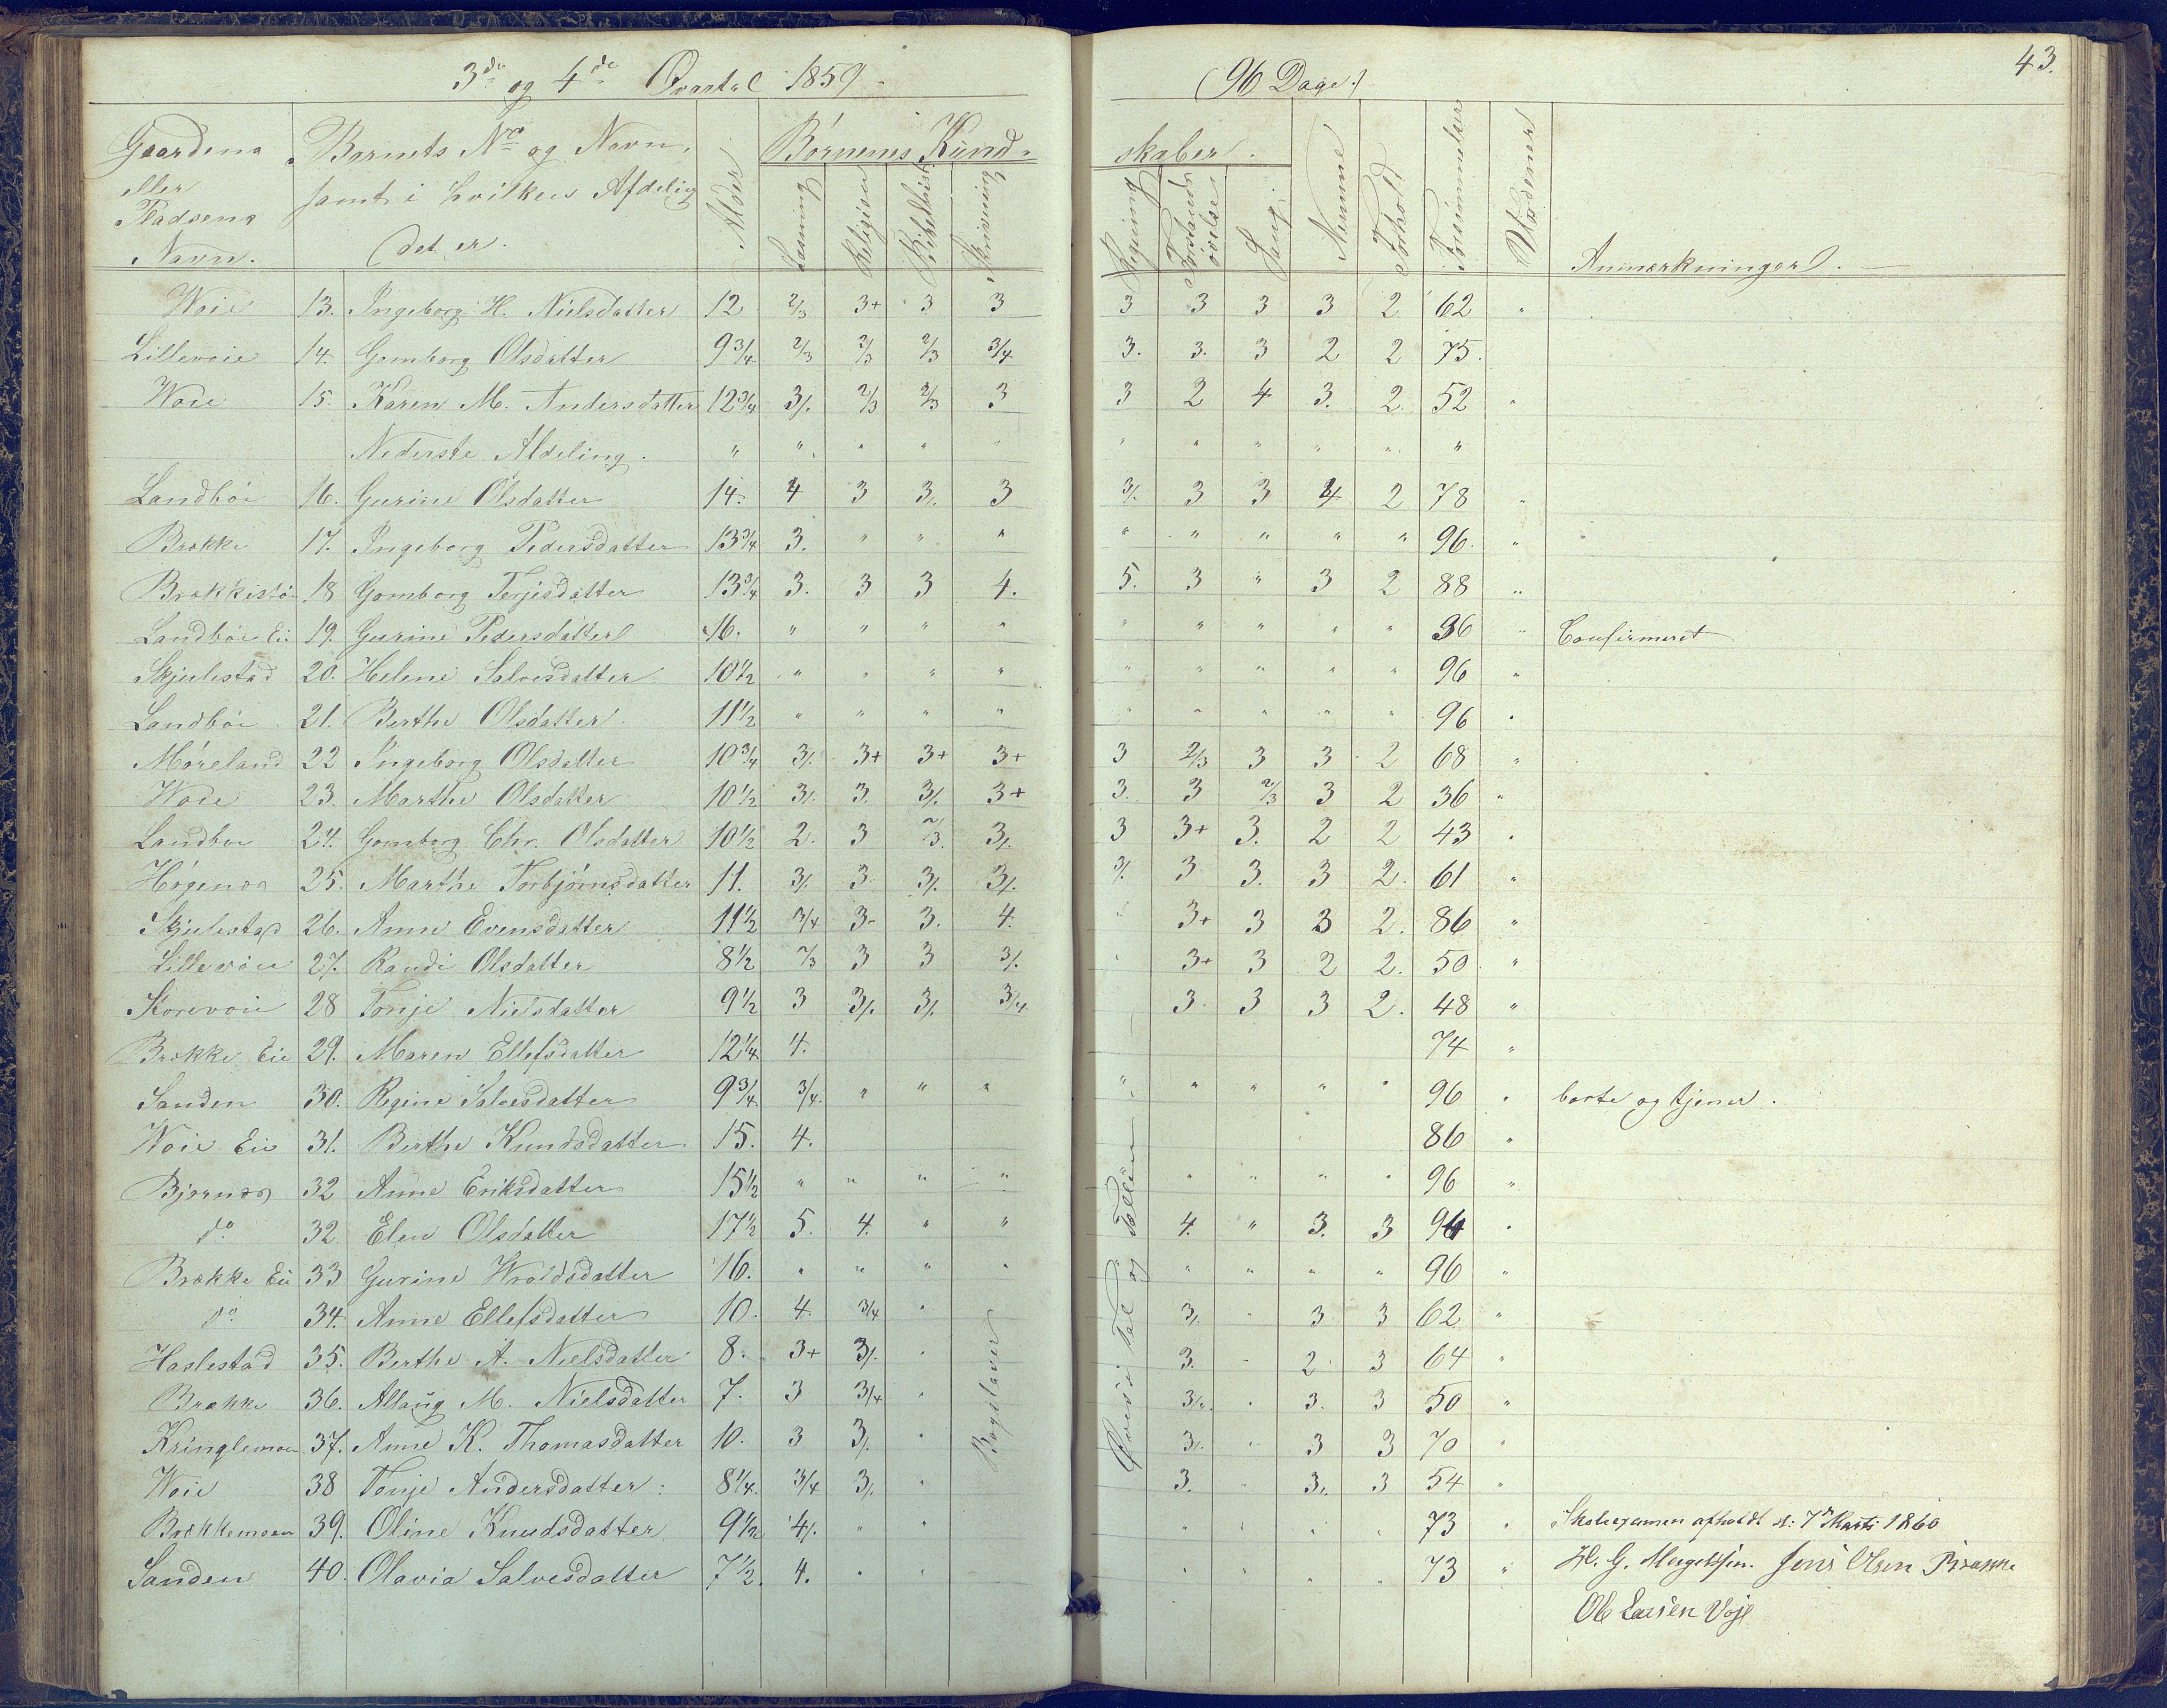 3de og 4de Qvartal 1859. (96 Dage.) 43.
Gaardens eller Pladsens Navn. Barnets No og Navn, samt i hvilken Afdeling det er. Alder Børnenes Kundskaber. Læsning Religion Bibelhist. Skrivning Regning Forstandsøvelse Sang. Nemme Forhold Forsømmelser Anmærkninger.
Woie 13. Ingeborg H. Nielsdatter 12 2/3 3+ 3 3 3 3 3 3 2 62 "
Lillevoie 14. Gomborg Olsdatter 9 3/4 2/3 2/3 2/3 3/4 3. 3. 3 2 2 75.
Woie 15. Karen M. Andersdatter 12 3/4 3/. 2/3 2/3 3 3 2 4 3. 2. 52 "
Nederste Afdeling. " " " " " " " " " " "
Landbøe 16. Gurine Olsdatter 14. 4 3 3/. 3 3/. 3 3 4 2 78 "
Brække 17. Ingeborg Pedersdatter 13 3/4 3. " " " " " " " " 96. "
Brækkestø 18 Gomborg Terjesdatter 13 3/4 3. 3 3 4. 5. 3 " 3 2 88 "
Landbøe Eie 19. Gurine Pedersdatter 16. " " " " " " " " " 96 " Confirmeret
Skjulestad 20. Helene Salvesdatter 10 1/2 " " " " " " " " " 96 "
Landbøe 21. Berthe Olsdatter 11 1/2 " " " " " " " " " 96 "
Møreland 22 Ingeborg Olsdatter 10 3/4 3/. 3+ 3+ 3+ 3 2/3 3 3 2 68 "
Woie 23. Marthe Olsdatter 10 1/2 3/. 3. 3/. 3+ 3. 3 2/3 3 2 36 "
Landbøe 24. Gomborg Chr. Olsdatter 10 1/2 2. 3 2/3. 3/. 3 3+ 3. 2 2 43 "
Høgenæs 25. Marthe Torbjørnsdatter 11. 3/. 3. 3/. 3/. 3/. 3 3. 3 2. 61 "
Skjulestad 26. Anne Evensdatter 11 1/2 3/4 3- 3. 4. " 3+ 3 3 2. 86 "
Lillevoie 27. Randi Olsdatter 8 1/2 2/3 3 3 3/. " 3+ 3 2 2. 50 "
Storevoie 28 Tonje Nielsdatter 9 1/2 3 3/. 3/. 3/4 3 3 3 2. 48 "
Brække Eie 29. Maren Ellefsdatter 12 1/4 4. 74 "
Sanden 30. Regine Salvesdatter 9 3/4 3/4. " " " " " " " " 96 " borte og tjener.
Woie Eie 31. Berthe Knudsdatter 15. 4. 86 "
Bjørnæs 32 Anne Eriksdatter 15 1/2 " " " " " " " " 96 "
do 32 Elen Olsdatter 17 1/2 5. 4. " " 4. " 3. 3 94 "
Brække Eie 33 Gurine Wroldsdatter 16. " " " " " " " " 96 "
do 34. Anne Ellefsdatter 10. 4. 3/4 " 3/. " 3 3 62 "
Haslestad 35. Berthe A. Nielsdatter 8. 3+ 3/. " 3. " 2 3 64 "
Brække 36. Allaug M. Nielsdatter 7. 3 3/4 " 3/. " 3. 3 50 "
Kringlemoen 37. Anne K. Thomasdatter 10. 3 3/. " 3/. " 3 3 70 "
Woie 38 Tonje Andersdatter: 8 1/4. 3/4 3/. " 3. " 3/. 3 54 "
Brækkemoen 39. Oline Knudsdatter 9 1/2 4/. " " " " " " 73 " Skoleexamen afholdt d: 7de Marts 1860
Sanden 40. Olavia Salvesdatter 7 1/2. 4. " " " " " " 73 " Jens Olsen Brække
Ole Larsen Voje
Bogstaver
Øves i Tal og Tællen